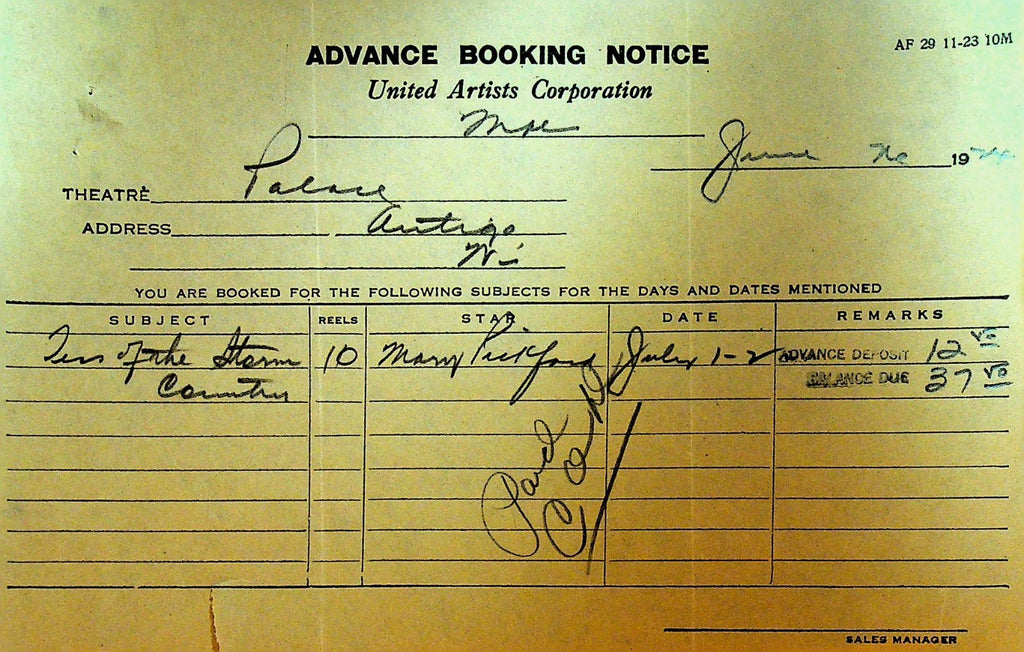 AF 29 11-23 10M
ADVANCE BOOKING NOTICE
United Artists Corporation
June 1924
THEATRE Palace
ADDRESS Antigo
Wi
YOU ARE BOOKED FOR THE FOLLOWING SUBJECTS FOR THE DAYS AND DATES MENTIONED
SUBJECT REELS STAR DATE REMARKS
Tess of the Storm 10 Mary Pickford July 1-2 ADVANCE DEPOSIT 12 50
Country BALANCE DUE 37 50
Paid
SALES MANAGER